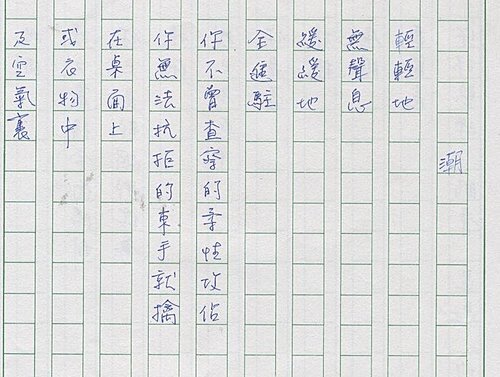 潮
輕輕地
無聲息
緩緩地
全進駐
你不曾查察的柔性攻佔
你無法抗拒的束手就擒
在桌面上
或衣物中
及空氣裏